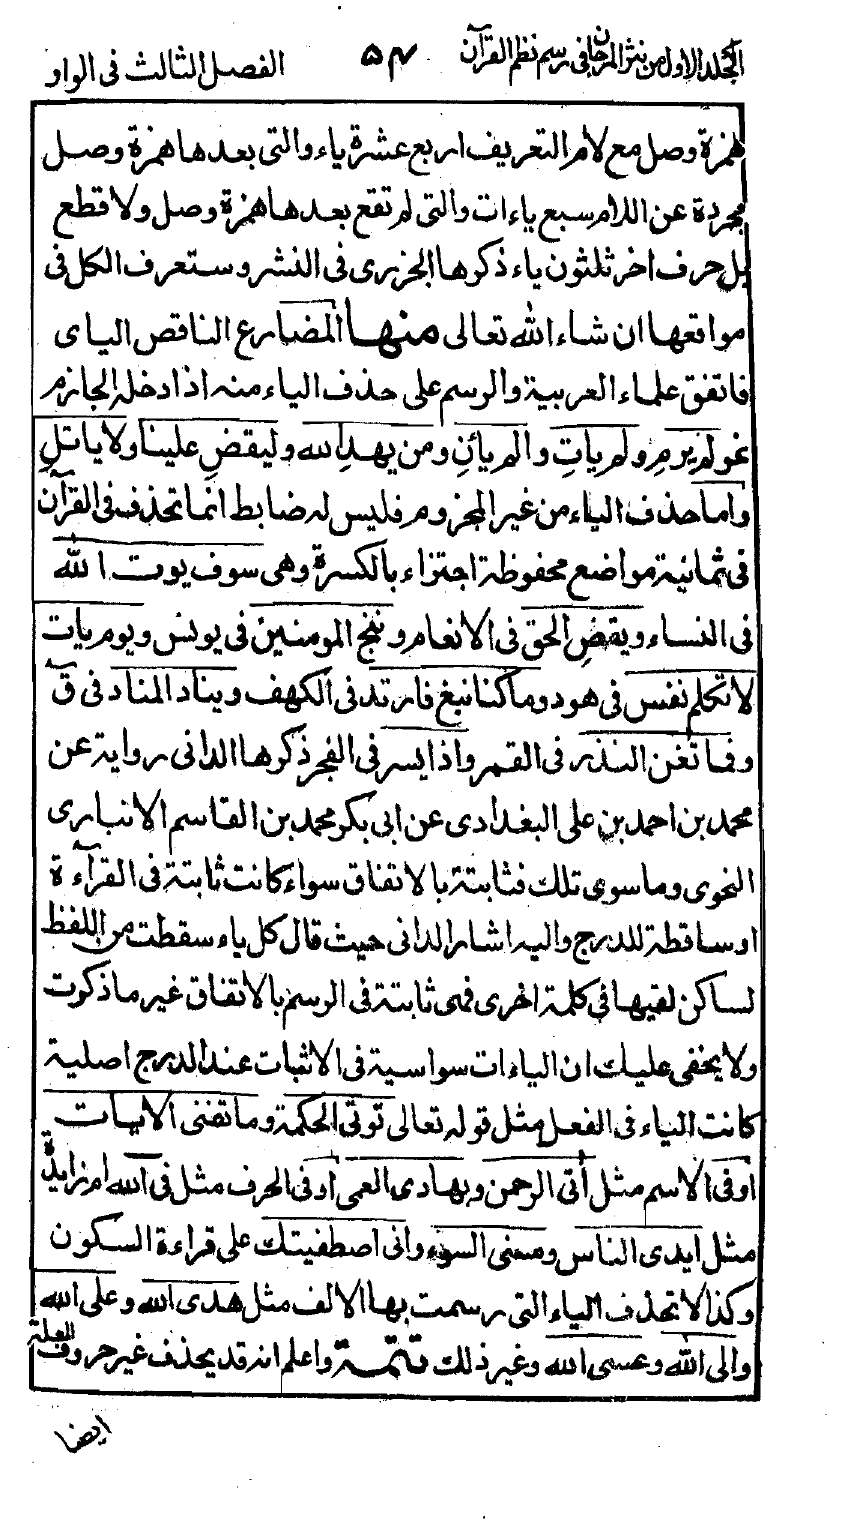 الجلد الاول من نثر المرجان فى رسم نظم القرآن ٥٤ الفصل الثالث فى الواو
همزة وصل مع لام التعريف اربع عشرة ياء والتى بعدها همزة وصل
مجردة عن اللام سبع ياءات والتى لم تقع بعدها همزة وصل ولا قطع
بل حرف اخر ثلثون ياء ذكرها الجزرى فى النشر وستعرف الكل فى
مواقعها ان شاء الله تعالى منها المضارع الناقص اليائى
فاتفق علماء العربية والرسم على حذف الياء منه اذا دخله الجازم
نحو لم يرم ولم يات والم يأنِ ومن يهدِ الله وليقضِ علينا ولا ياتلِ
واما حذف الياء من غير المجزوم فليس له ضابط انما تحذف فى القرآن
فى ثمانية مواضع محفوظة اجتزاء بالكسرة وهى سوف يوت الله
فى النساء ويقضِ الحق فى الانعام وننج المومنين فى يونس ويوم يات
لا تكلم نفس فى هود وما كنا نبغ فارتد فى الكهف ويناد المناد فى قٓ
وفما تغن النذر فى القمر واذا يسر فى الفجر ذكرها الدانى رواية عن
محمد بن احمد بن على البغدادى عن ابى بكر محمد بن القاسم الانبارى
النحوى وما سوى تلك فثابتة بالاتفاق سواء كانت ثابتة فى القرآءة
او ساقطة للدرج واليه اشار الدانى حيث قال كل ياء سقطت من اللفظ
لساكن لقيها فى كلمة اخرى فهى ثابتة فى الرسم بالاتفاق غير ما ذكرت
ولا يخفى عليك ان الياءات سواسية فى الاثبات عند الدرج اصلية
كانت الياء فى الفعل مثل قوله تعالى توتى الحكمة وما تغنى الايات
او فى الاسم مثل أتى الرحمن وبهادى العمى او فى الحرف مثل فى الله ام زايدة
مثل ايدى الناس ومسنى السوء وانى اصطفيتك على قراءة السكون
وكذا لا تحذف الياء التى رسمت بها الالف مثل هدى الله وعلى الله
والى الله وعسى الله وغير ذلك تتمة واعلم انه قد يحذف غير حروف العلة
ايضا